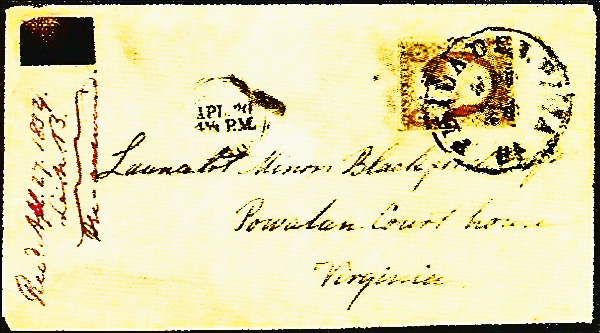 PHILADELPHIA Pa
APL. 20
4½ P.M.
Launcelot Minor Blackford
Powatan Court house
Virginia
Rec'd. Apl. 27. 1854.